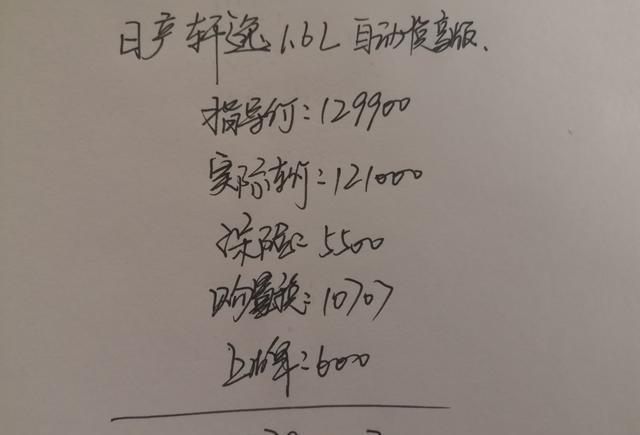 日产轩逸1.6L 自动挡高版.
指导价:129900
实际车价:121000
保险:5500
购置税:10707
上牌:600